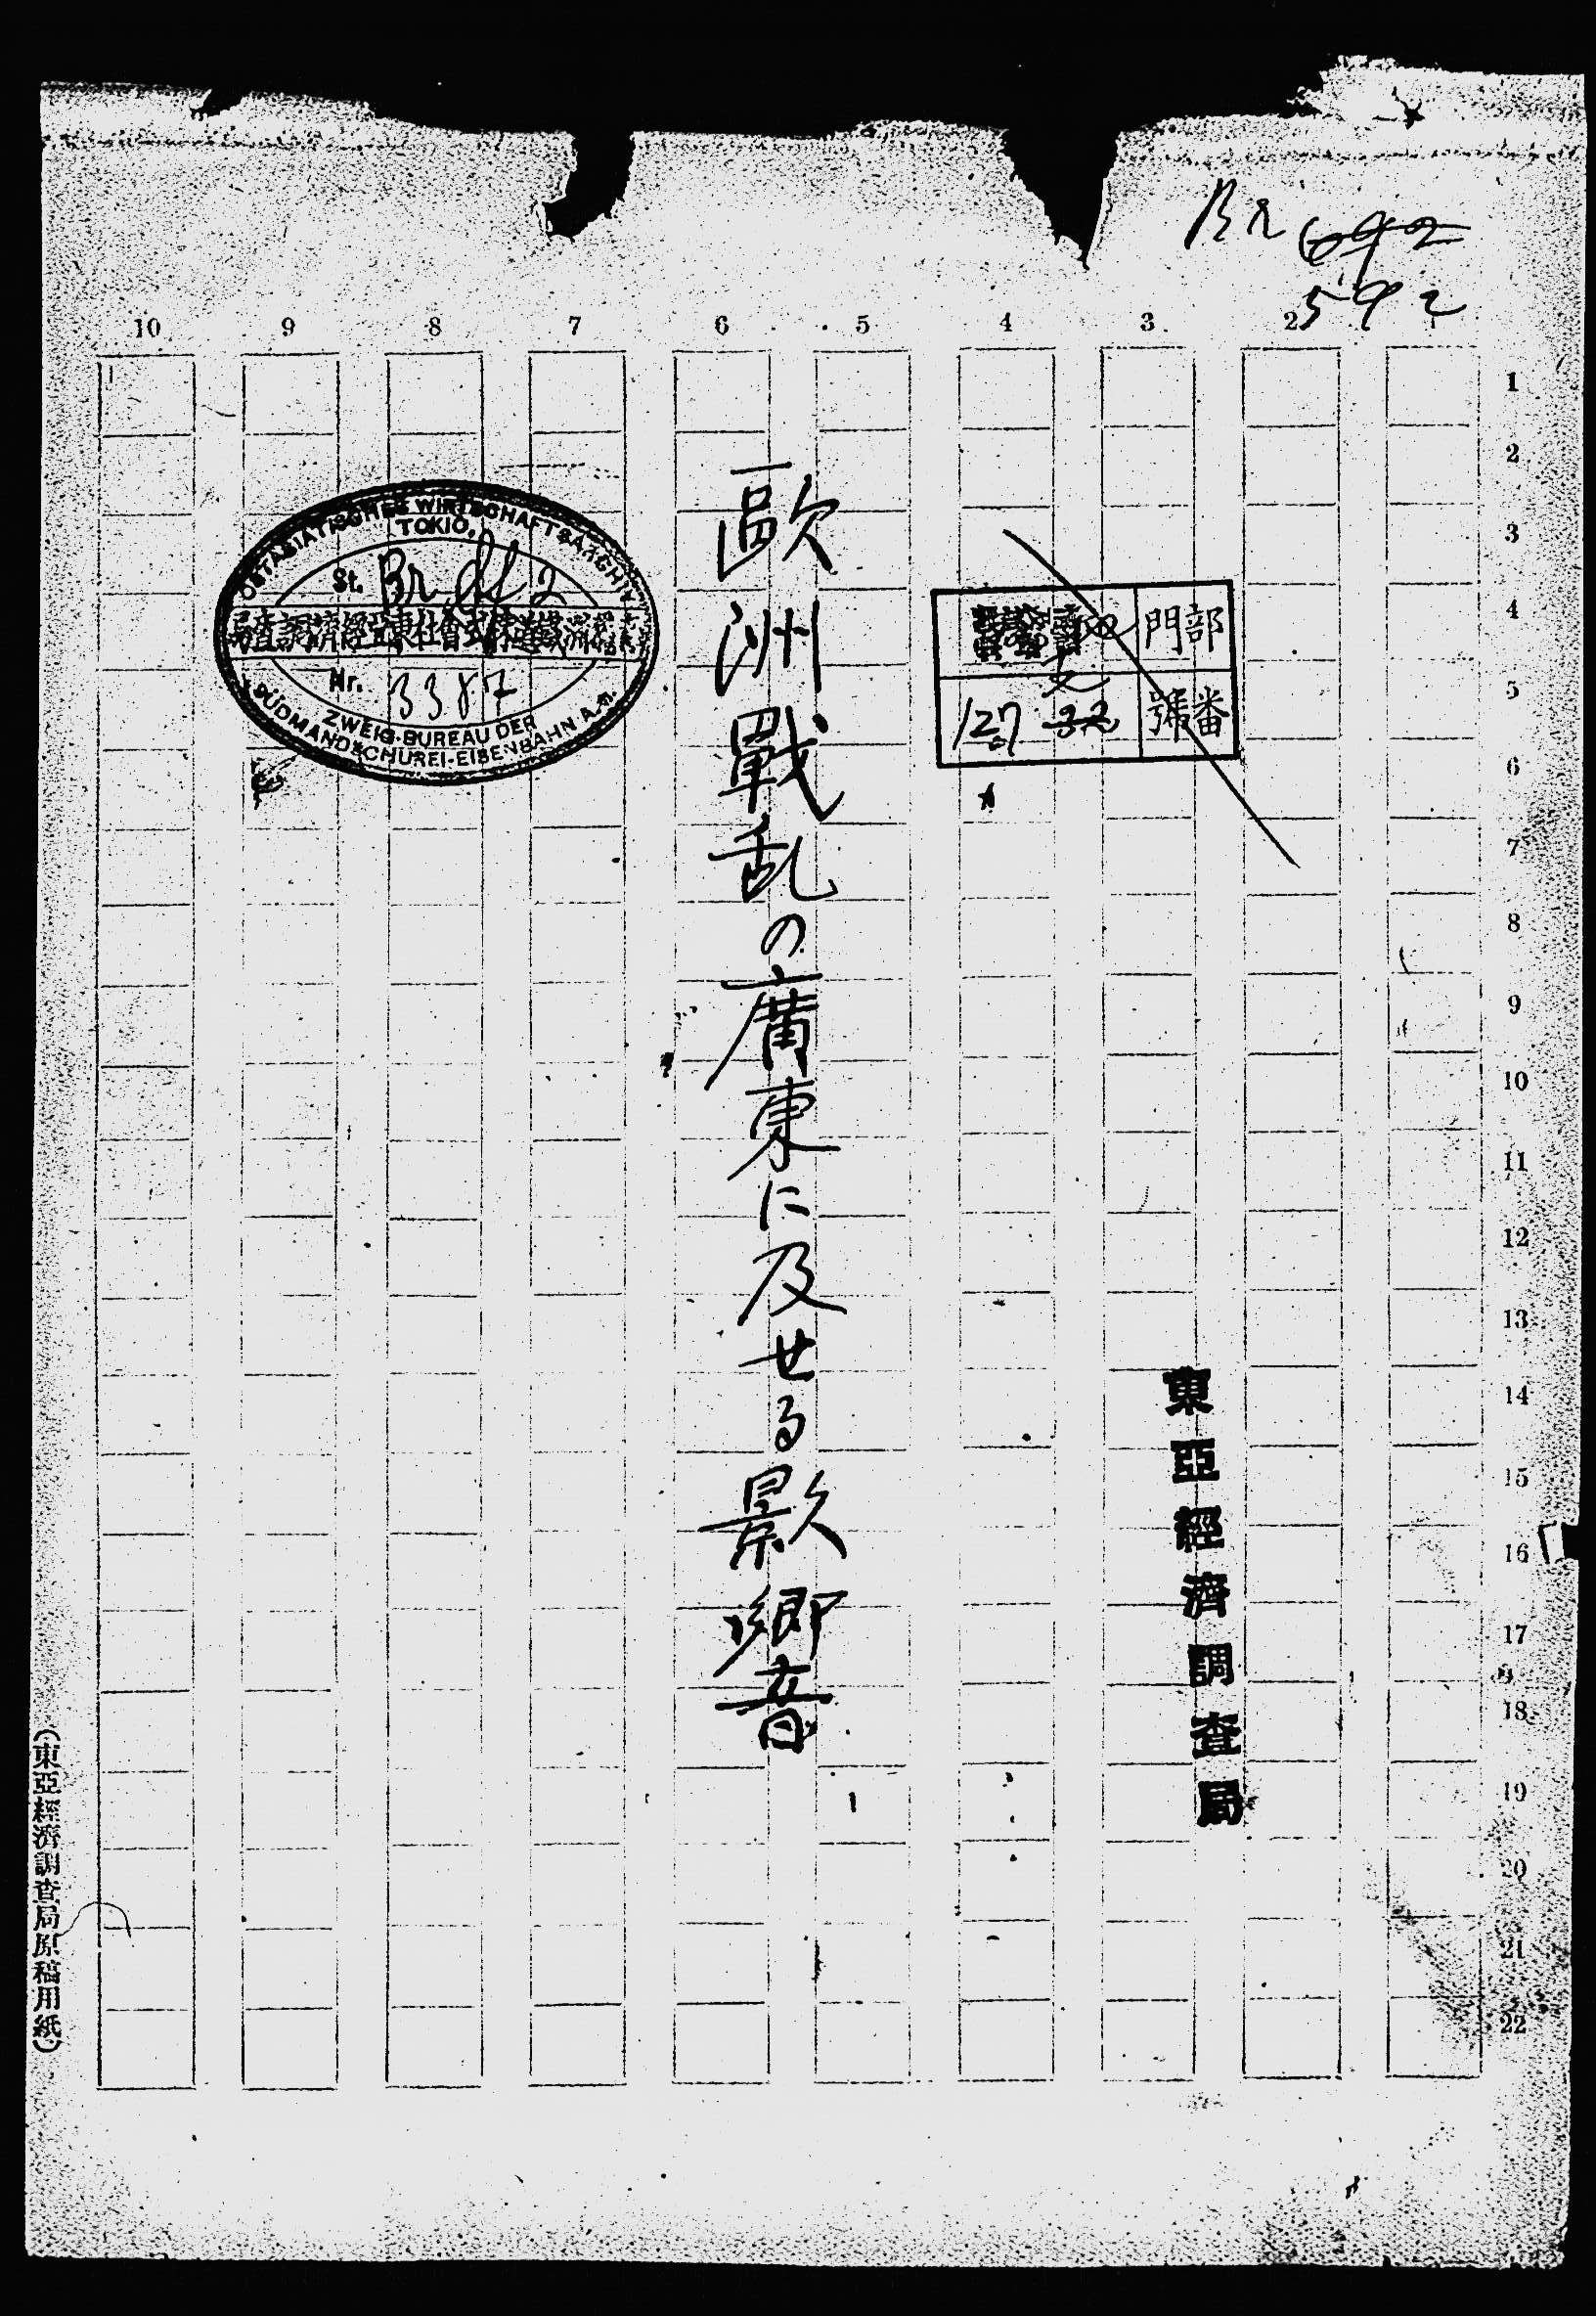 Br 692
592
10 9 8 7 6 5 4 3 2 1
1
2
3
4
5
6
7
8
9
10
11
12
13
14
15
16
17
18
19
20
21
22
部門
番號
32 127
東亞經濟調査局
歐洲戰乱の廣東に及せる影響
OSTASIATISCHES WIRTSCHAFTSARCHIV
TOKIO,
St. Br
南滿洲鐵道株式會社東亞經濟調査局
Nr. 3387
ZWEIG-BUREAU DER
SÜDMANDSCHUREI-EISENBAHN A.G.
(東亞經濟調査局原稿用紙)